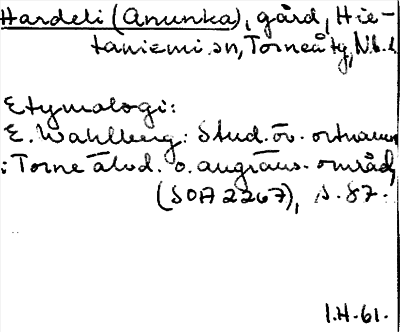 Hardeli (Anunka), gård, Hie-
taniemi sn, Torneå tg, Nb. l.
Etymologi:
E. Wahlberg: Stud. öv. ortnamn
i Torne älvd. o. angräns. områd,
(SOA 2267), s. 87.
I.H. 61.